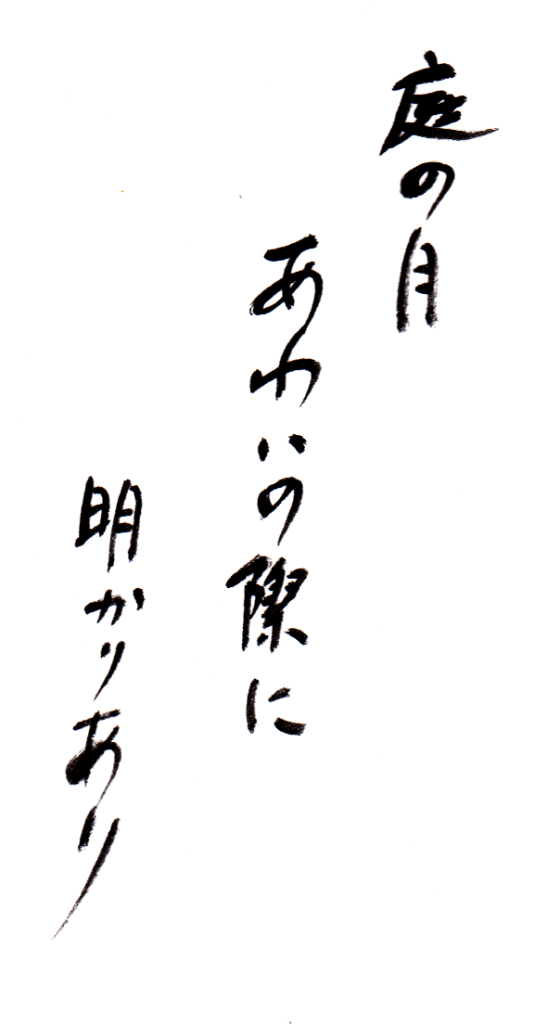 庭の月
あわいの際に
明かりあり